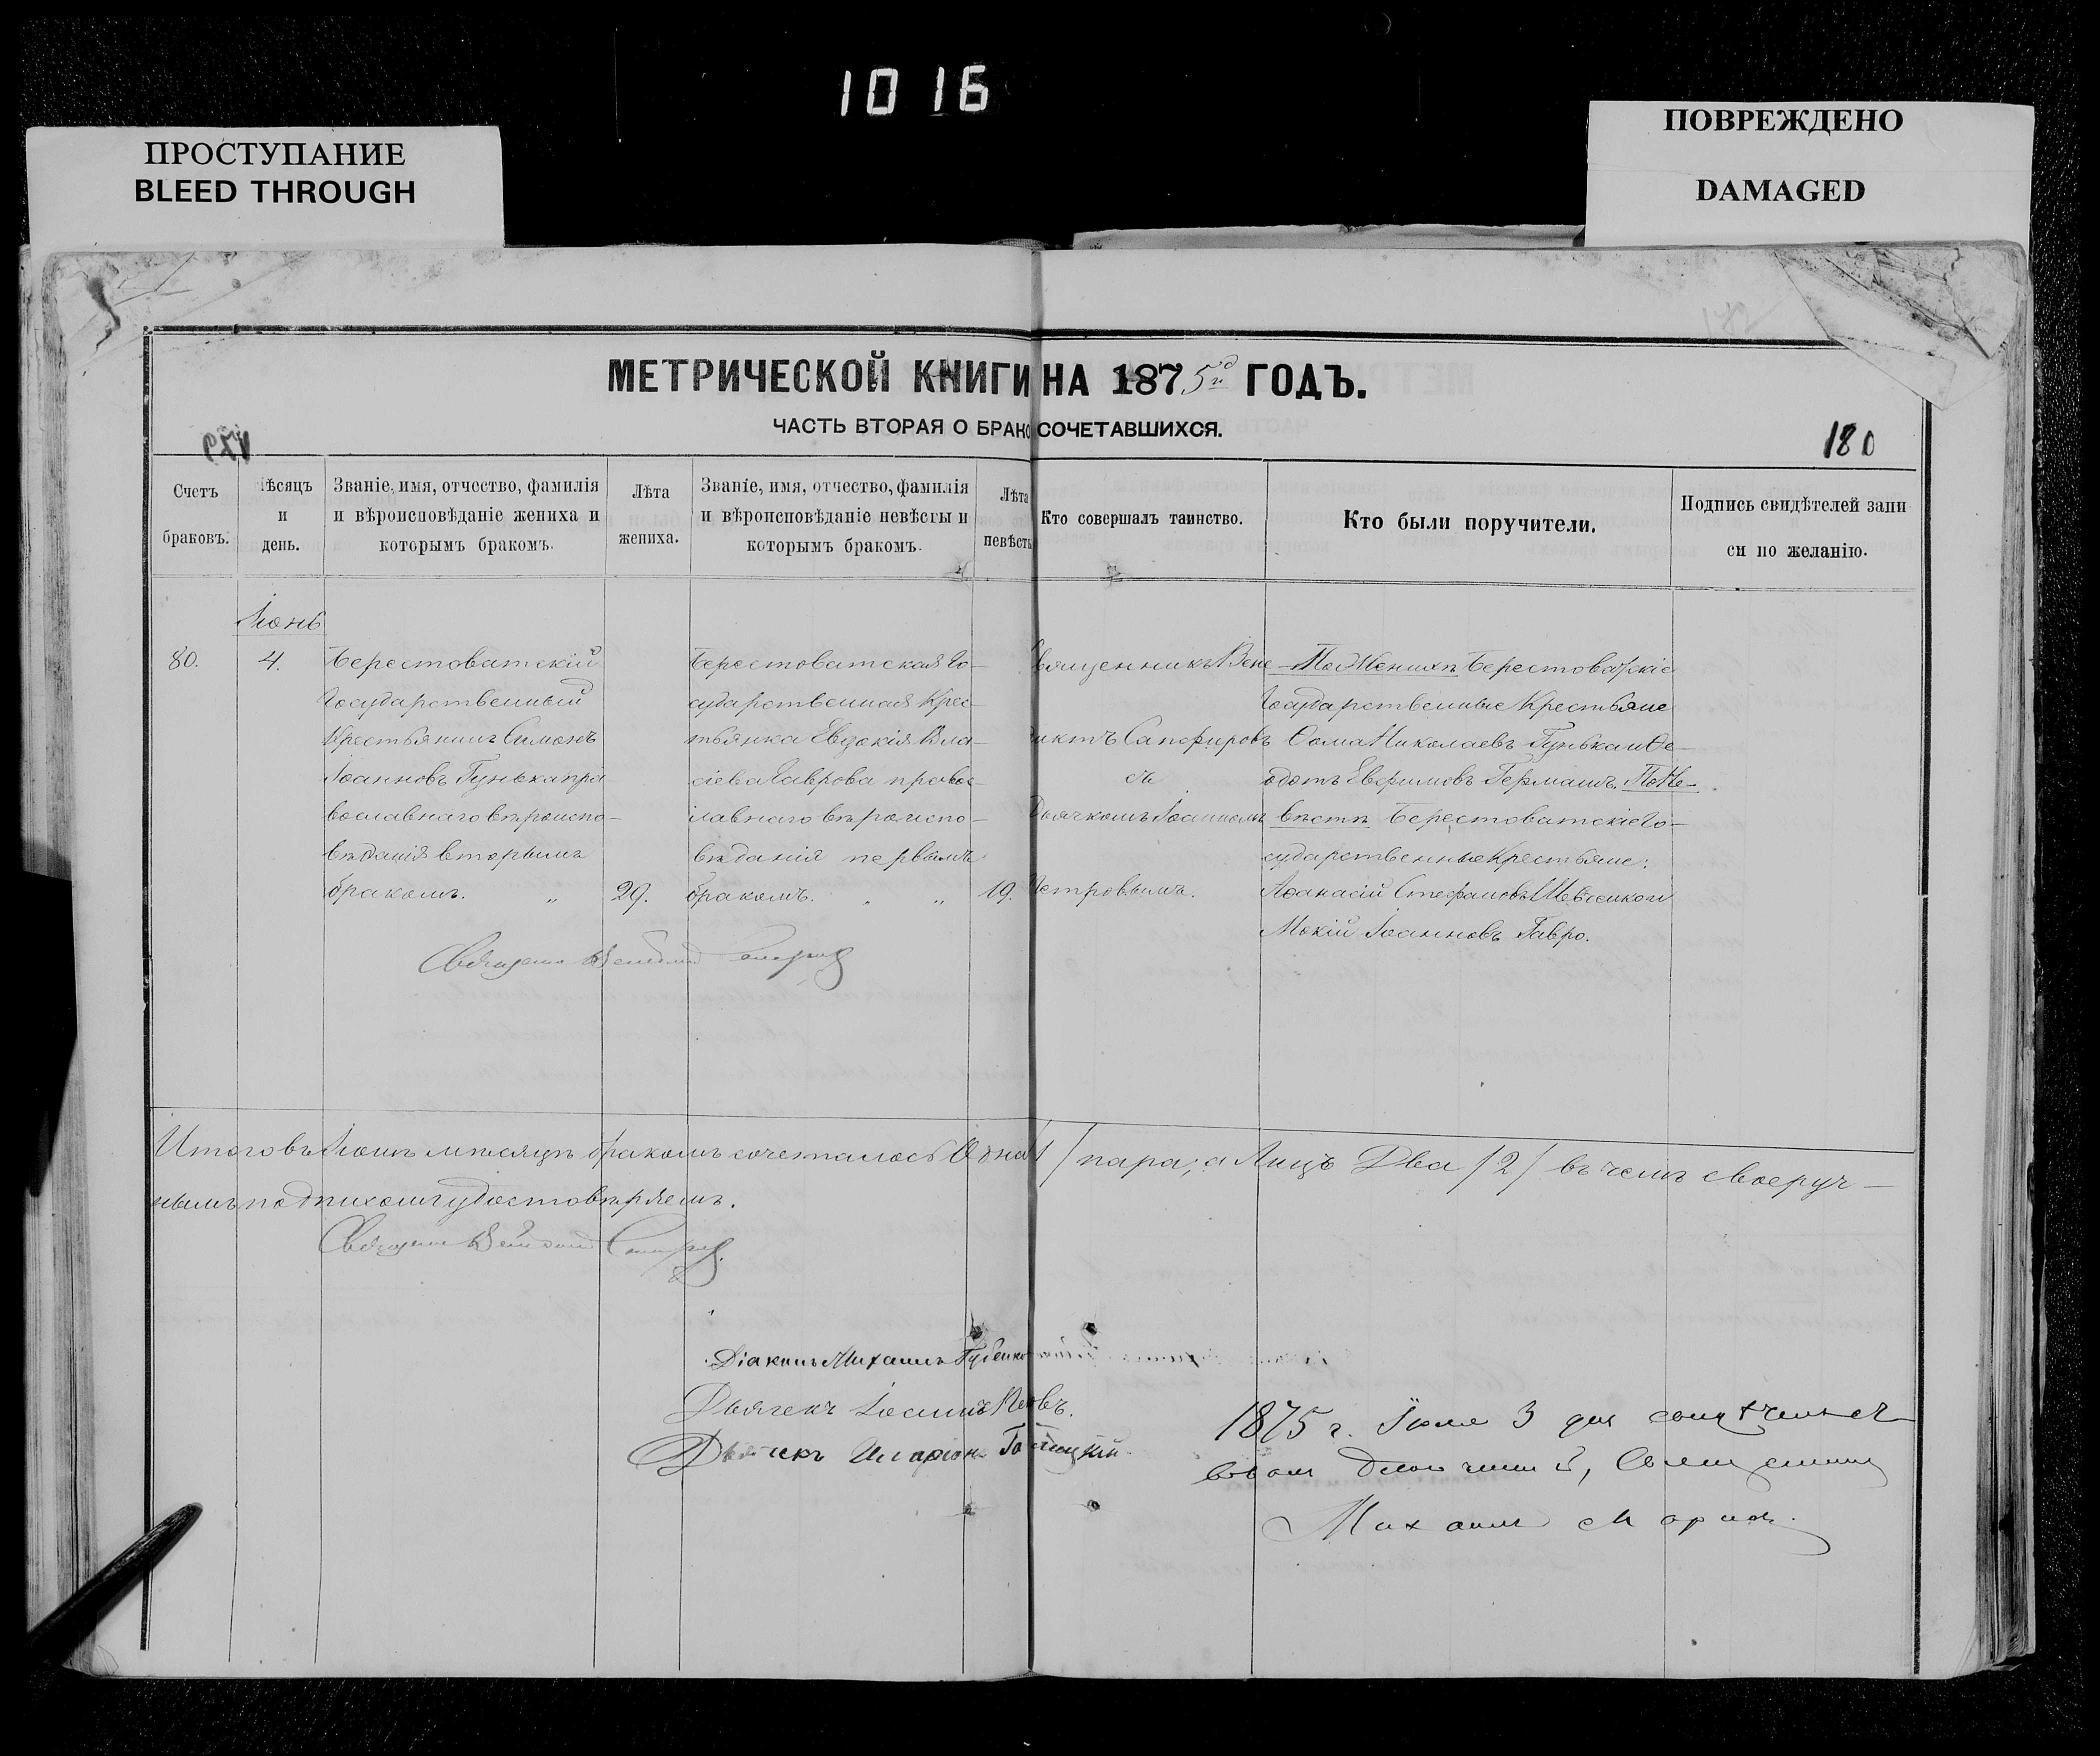 10 16
ПРОСТУПАНИЕ
BLEED THROUGH
ПОВРЕЖДЕНО
DAMAGED
МЕТРИЧЕСКОЙ КНИГИ НА 1875й ГОДЪ.
ЧАСТЬ ВТОРАЯ О БРАКОСОЧЕТАВШИХСЯ.
180
Счетъ
браковъ.
мѣсяцъ
и
день.
Званіе, имя, отчество, фамилія
и вѣроисповѣданіе жениха и
которымъ бракомъ.
Лѣта
жениха.
Званіе, имя, отчество, фамилія
и вѣроисповѣданіе невѣсты и
которымъ бракомъ.
Лѣта
невѣсты
Кто совершалъ таинство.
Кто были поручители.
Подпись свидѣтелей запи
си по желанію.
80.
Іюнь
4.
Берестоватскій
Государственный
Крестьянинъ Симонъ
Іоанновъ Гунька пра
вославнаго вѣроиспо-
вѣданія вторымъ
бракомъ. „
29.
Берестоватская Го-
сударственная Крес-
тьянка Евдокія Вла-
сіева Гаврова правос-
лавнаго вѣроиспо-
вѣданія первымъ
бракомъ. „ „
19.
Священникъ Вене-
диктъ Сапфировъ
съ
Дьячкомъ Іоанномъ
Петровымъ.
По Женихѣ Берестоватскіе
Государственные Крестьяне
Ѳома Николаевъ Гунька и Ѳе-
одотъ Евфимовъ Германъ. По Не-
вѣстѣ Берестоватскіе Го-
сударственные Крестьяне:
Аѳанасій Стефановъ Шевченко и
Мокій Іоанновъ Гавро.
Итого въ Іюнѣ мѣсяцѣ бракомъ сочеталось Одна /1/ пара; а Лицъ Два /2/ въ чемъ своеруч-
нымъ подписомъ удостовѣряемъ.
Діаконъ Михаилъ Губенко
Дьячекъ Іоаннъ
Дьячекъ Иларіонъ
1875 г. Іюля 3 дня
Михаилъ